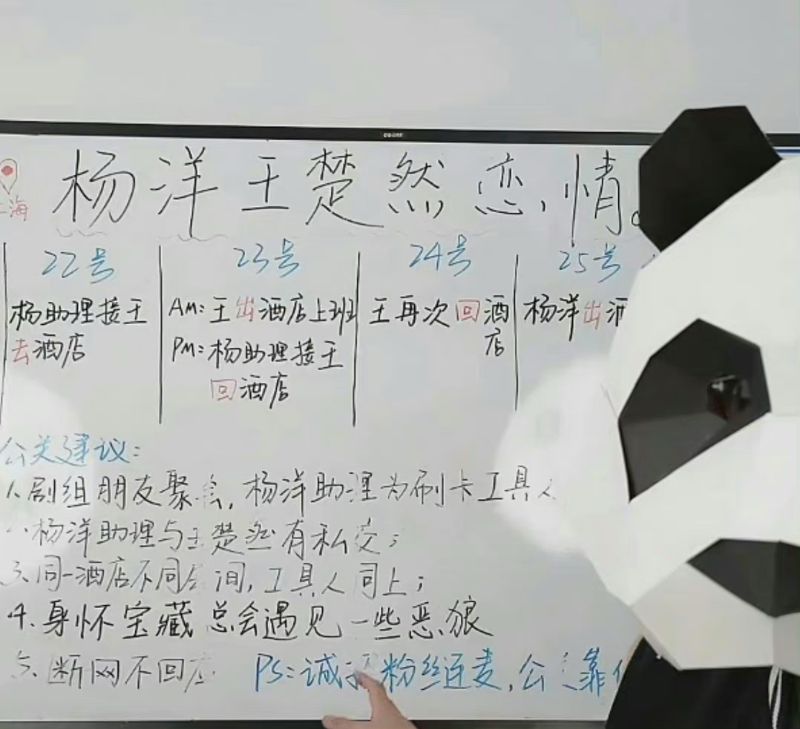 杨洋王楚然恋情
海
22号 23号 24号 25号
杨助理接王
去酒店
AM:王出酒店上班
PM:杨助理接王
回酒店
王再次回酒
店
杨洋出酒
公关建议:
1.剧组朋友聚会,杨洋助理为刷卡工具人
杨洋助理与王楚然有私交;
3.同一酒店不同房间,工具人同上;
4.身怀宝藏总会遇见一些恶狼
5.断网不回应
PS:诚招粉丝连麦,公关靠你